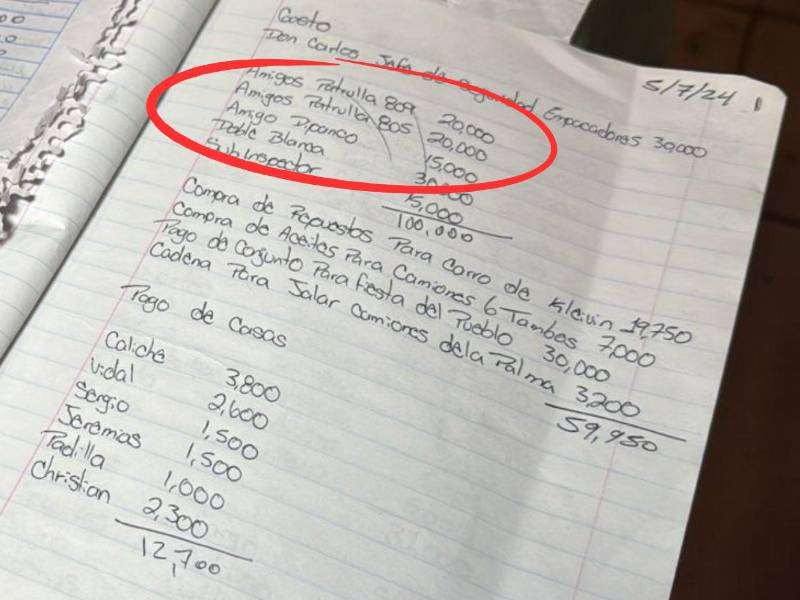 5/7/24
Gasto
Don Carlos Jefe de Seguridad Empacadores 30,000
Amigos Patrulla 809 20,000
Amigos Patrulla 805 20,000
Amigo Diponco 15,000
Doble Blanca 30,000
SubInspector 15,000
100,000
Compra de Repuestos Para Carro de Kleivin 19,750
Compra de Aceites Para Camiones 6 Tambos 7,000
Pago de Conjunto Para fiesta del Pueblo 30,000
Cadena Para Jalar Camiones dela Palma 3,200
59,950
Pago de Casas
Caliche 3,800
Vidal 2,600
Sergio 1,500
Jeremias 1,500
Padilla 1,000
Christian 2,300
12,700